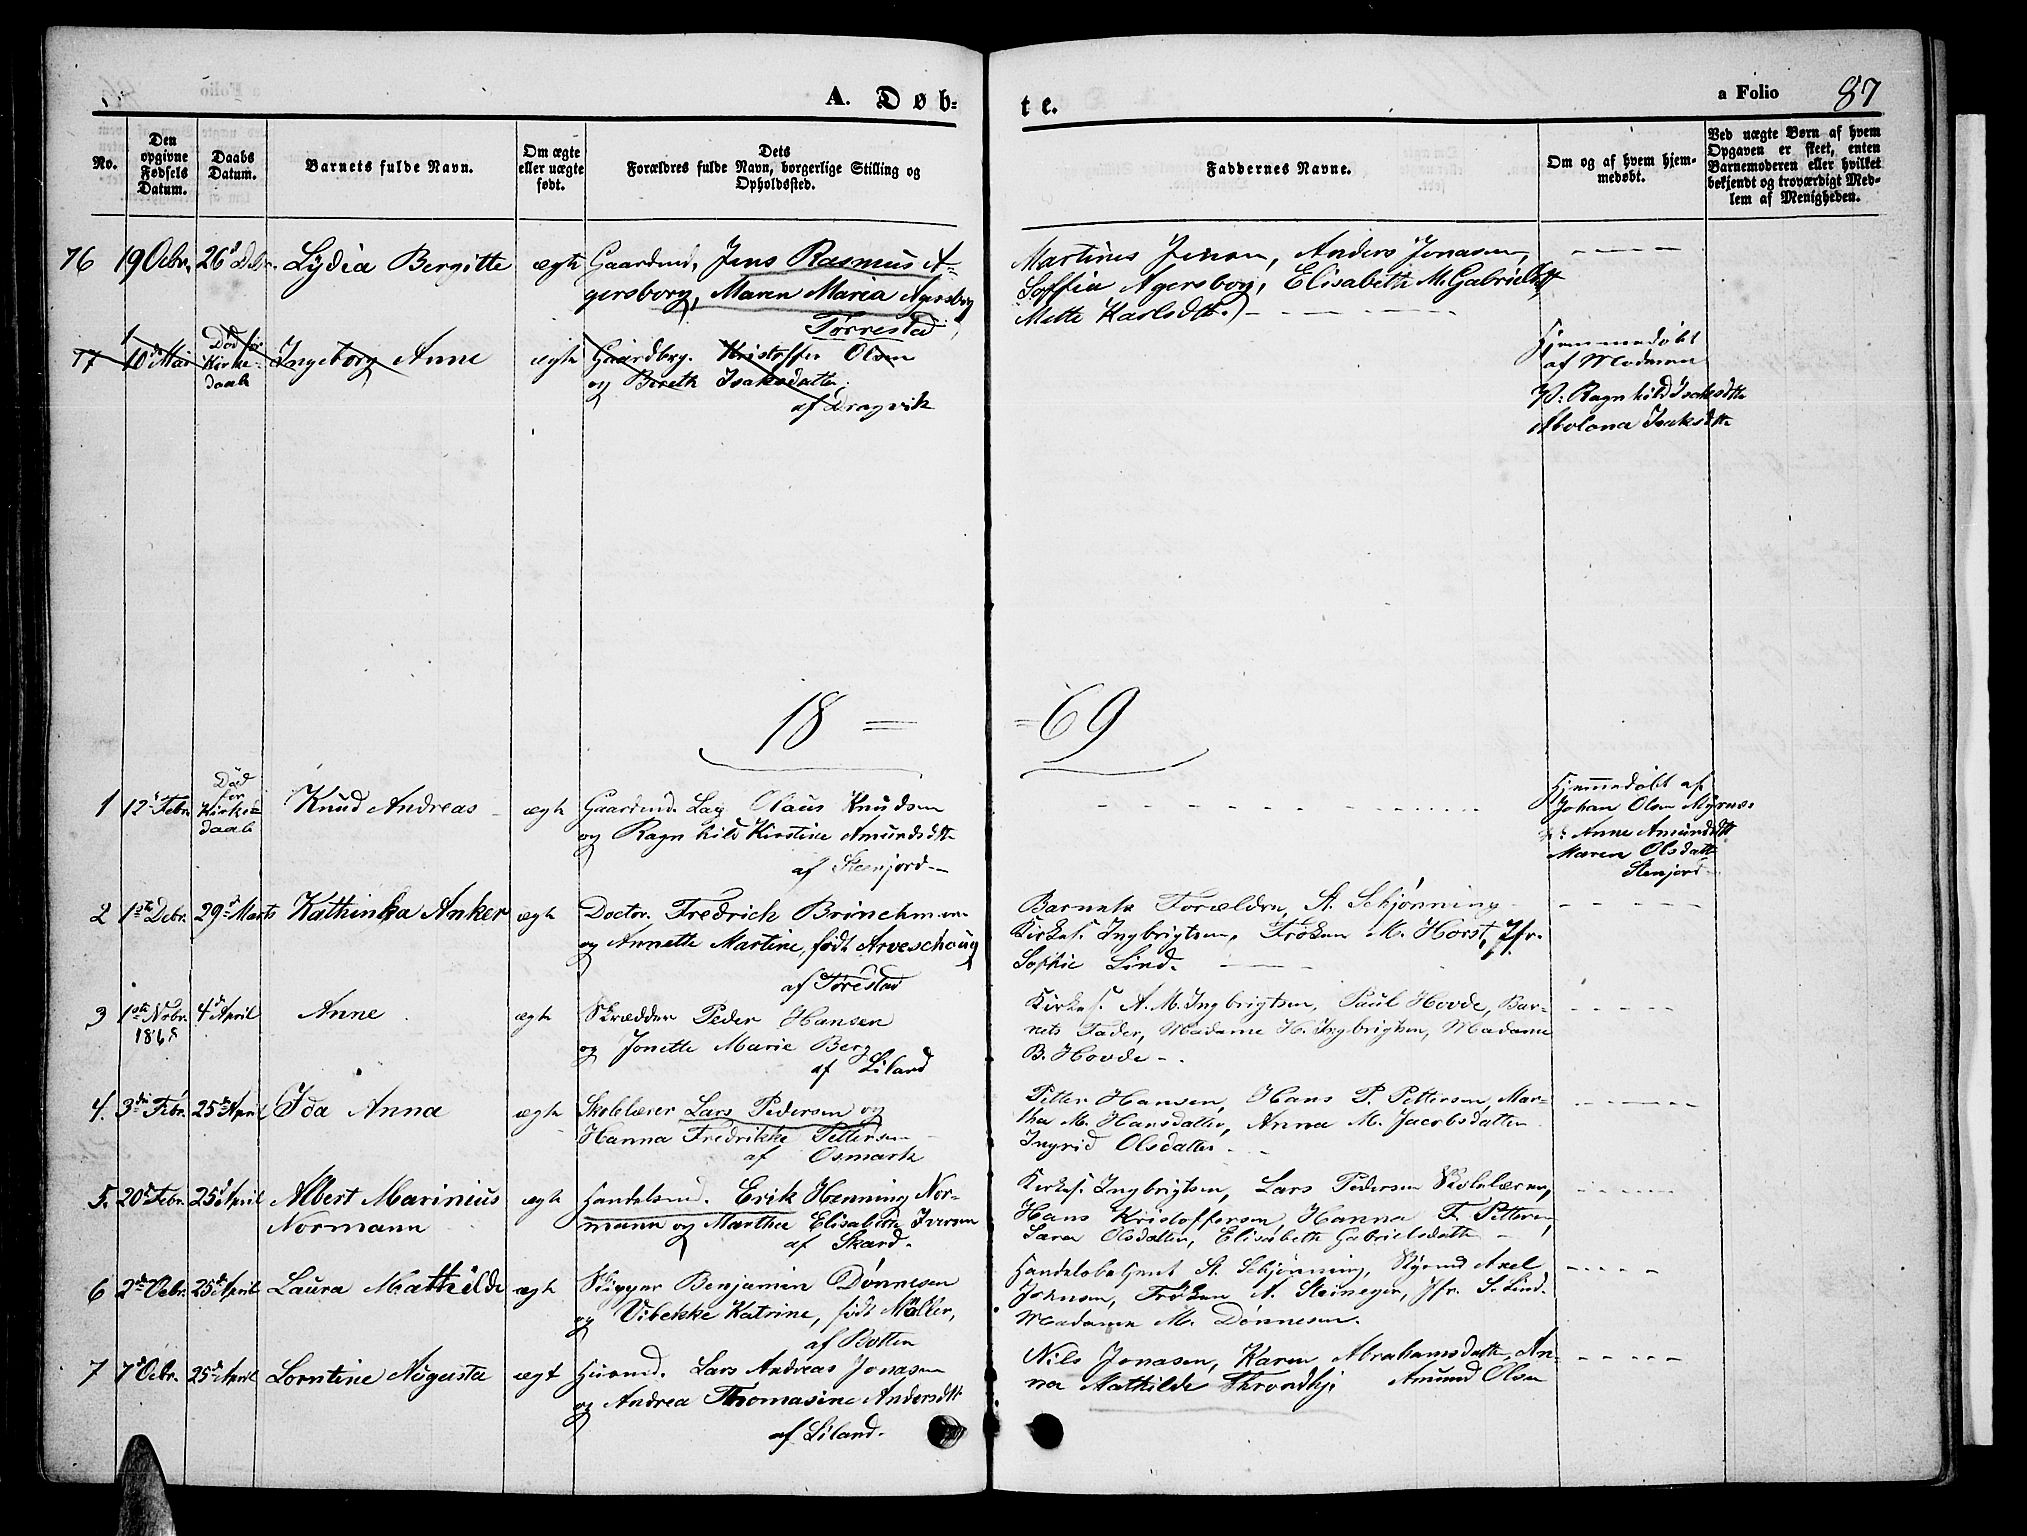 A. Døb=
te.
a Folio 87
No.
Den opgivne Fødsels Datum.
Daabs Datum.
Barnets fulde Navn.
Om ægte eller uægte født.
Dets Forældres fulde Navn, borgerlige Stilling og Opholdssted.
Faddernes Navne.
Om og af hvem hjemmedøbt.
Ved uægte Børn af hvem Opgaven er skeet, enten Barnemoderen eller hvilket bekjendt og troværdigt Medlem af Menigheden.
76 19 Octbr. 26d Dcbr. Lydia Bergitte ægte Gaardmd. Jens Rasmus A=
gersborg, Maren Maria Agersborg
Torrestad
Martinus Jensen, Anders Jonasen,
Soffia Agersborg, Elisabeth M. Gabrielsdtt
Mette Karlsdtt.
77 10d Mai Død før Kirkedaab Ingeborg Anne ægte Gaardbrg. Kristoffer Olsen
og Bereth Isaksdatter,
af Dragvik
Hjemmedøbt
af Moderen
V: Ragnhild Isaksdtte
Abolona Isaksdtt
18 = = 69
1 12te Febr. Død før Kirkedaab Knud Andreas ægte Gaardmd. Lag Olaus Knudsen
og Ragnhild Kirstine Amundsdtt
af Steenjord
Hjemmedøbt af
Johan Olsen Myrnes
V: Anne Amundsdtt
Maren Olsdatt
Stenjord
2 1ste Debr. 29d Marts Kathinka Anker ægte Doctor. Fredrich Brinchmann
og Annette Martine, født Arveschoug
af Torestad
Barnets Forældre, A. Schjønning
Kirkes. Ingbrigtsen, Frøken M. Horst, Jfr.
Sophie Lind.
3 1ste Nobr. 1868 4d April Anne ægte Skrædder Peder Hansen
og Jonette Marie Berg
af Liland
Kirkes. A. M. Ingbrigtsen, Paul Hovde, Bar=
nets Fader, Madame H. Ingbrigtsen, Madame
B. Hovde
4. 3die Febr. 25d April Ida Anna ægte Skolelærer Lars Pedersen og
Hanna Fredrikke Pettersen
af Osmark
Petter Hansen, Hans P. Pettersen, Mar=
tha M. Hansdatter, Anna M. Jacobsdatter
Ingrid Olsdatter
5. 20d Febr. 25d April Albert Marinius
Normann
ægte Handelsmd. Erik Henning Nor=
mann og Martha Elisabeth Iversen
af Skard.
Kirkes. Ingbrigtsen, Lars Pedersen Skolelærer,
Hans Kristoffersen, Hanna F. Pettersen,
Saren Olsdatter, Elisabeth Gabrielsdatte
6 2d Octbr. 25d April Laura Mathilde ægte Skipper Benjamin Dønnesen
og Vibekke Katrine, født Møller,
af Botten
Handelsbetjent A. Schjønning, Styrmd Axel
Johnsen, Frøken A. Steineger, Jfr. S. Lind.
Madamen M. Dønnesen.
7 7d Octbr. 25d April Lorntine Augusta ægt Huusmd. Lars Andreas Jonasen
og Andrea Thomasine Andersdtt
af Liland.
Nils Jonasen, Karen Abrahamsdatte, An=
na Mathilde Throndhj. Amund Olsen